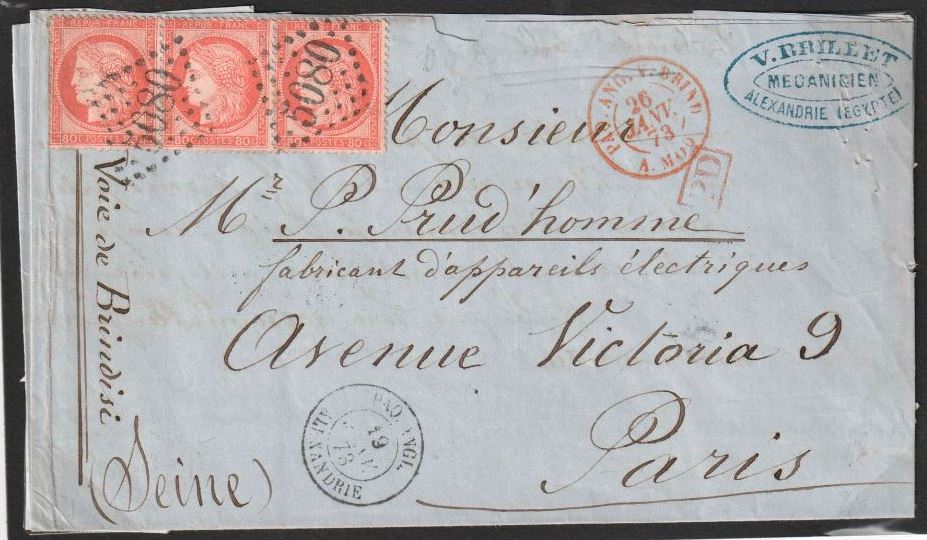 REPUB. FRANC. REPUB. FRANC. REPUB. FRANC.
80 C POSTES 80 C POSTES 80 POSTES 80
5080 5080
V. BRILLET
MECANICIEN
ALEXANDRIE (EGYPTE)
PAQ. ANG. V. BRIND
26
JANV.
73
A. MOD
PD
Monsieur
Mr P. Prud'homme
fabricant d'appareils électriques
Avenue Victoria 9
Paris
(Seine)
Voie de Brindisi
PAQ. ANGL.
19
73
ALEXANDRIE